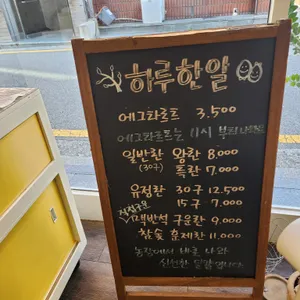 하루한알
에그타르트 3.500
에그타르트는 11시 부터 나와요
일반란 왕란 8.000
(30구) 특란 7.000
유정란 30구 12.500
15구 7.000
맥반석 구운란 9.000
참숯 훈제란 11.000
농장에서 바로 나와
신선한 달걀입니다